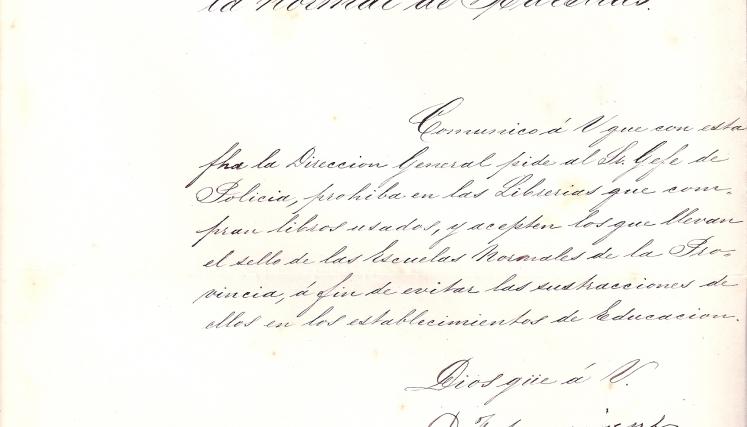 la normal de Maestras.
Comunico á V que con esta
fha la Direccion General pide al Sr. Gefe de
Policia, prohiba en las Librerias que com-
pran libros usados, y acepten los que llevan
el sello de las Escuelas Normales de la Pro-
vincia, á fin de evitar las sustracciones de
ellos en los establecimientos de Educacion.
Dios güe á V.